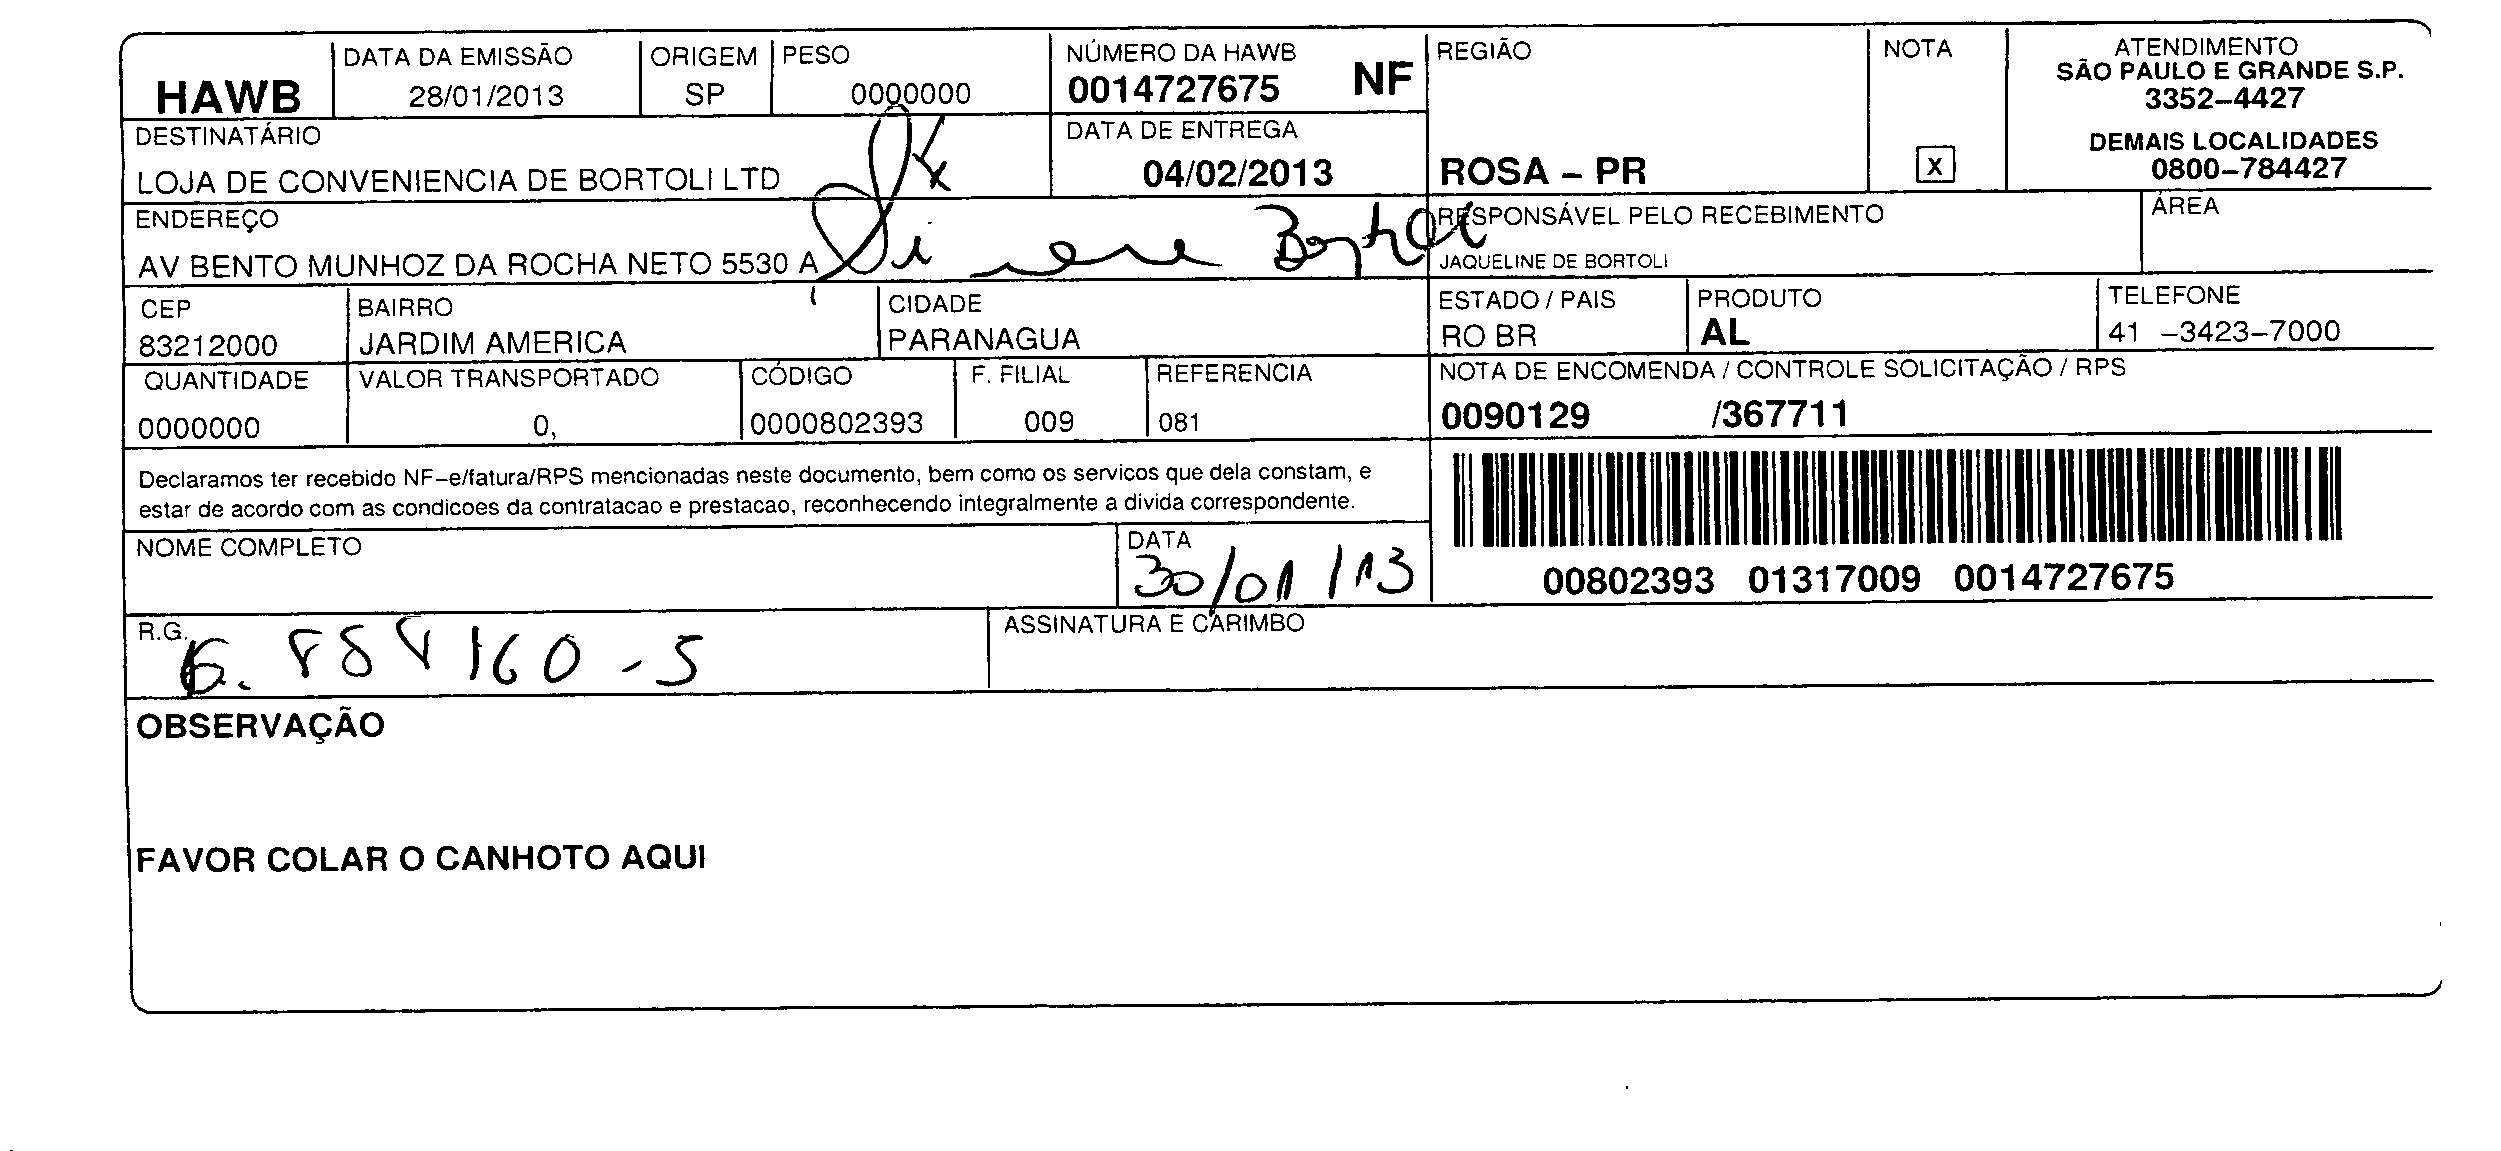 HAWB
DATA DA EMISSÃO
28/01/2013
ORIGEM
SP
PESO
0000000
NÚMERO DA HAWB
0014727675 NF
DATA DE ENTREGA
04/02/2013
REGIÃO
ROSA – PR
NOTA
X
ATENDIMENTO
SÃO PAULO E GRANDE S.P.
3352–4427
DEMAIS LOCALIDADES
0800–784427
DESTINATÁRIO
LOJA DE CONVENIENCIA DE BORTOLI LTD
ENDEREÇO
AV BENTO MUNHOZ DA ROCHA NETO 5530 A
RESPONSÁVEL PELO RECEBIMENTO
JAQUELINE DE BORTOLI
ÁREA
CEP
83212000
BAIRRO
JARDIM AMERICA
CIDADE
PARANAGUA
ESTADO / PAIS
RO BR
PRODUTO
AL
TELEFONE
41 –3423–7000
QUANTIDADE
0000000
VALOR TRANSPORTADO
0,
CÓDIGO
0000802393
F. FILIAL
009
REFERENCIA
081
NOTA DE ENCOMENDA / CONTROLE SOLICITAÇÃO / RPS
0090129 /367711
Declaramos ter recebido NF–e/fatura/RPS mencionadas neste documento, bem como os servicos que dela constam, e
estar de acordo com as condicoes da contratacao e prestacao, reconhecendo integralmente a divida correspondente.
00802393 01317009 0014727675
NOME COMPLETO
DATA
30/01/13
R.G.
ASSINATURA E CARIMBO
OBSERVAÇÃO
FAVOR COLAR O CANHOTO AQUI